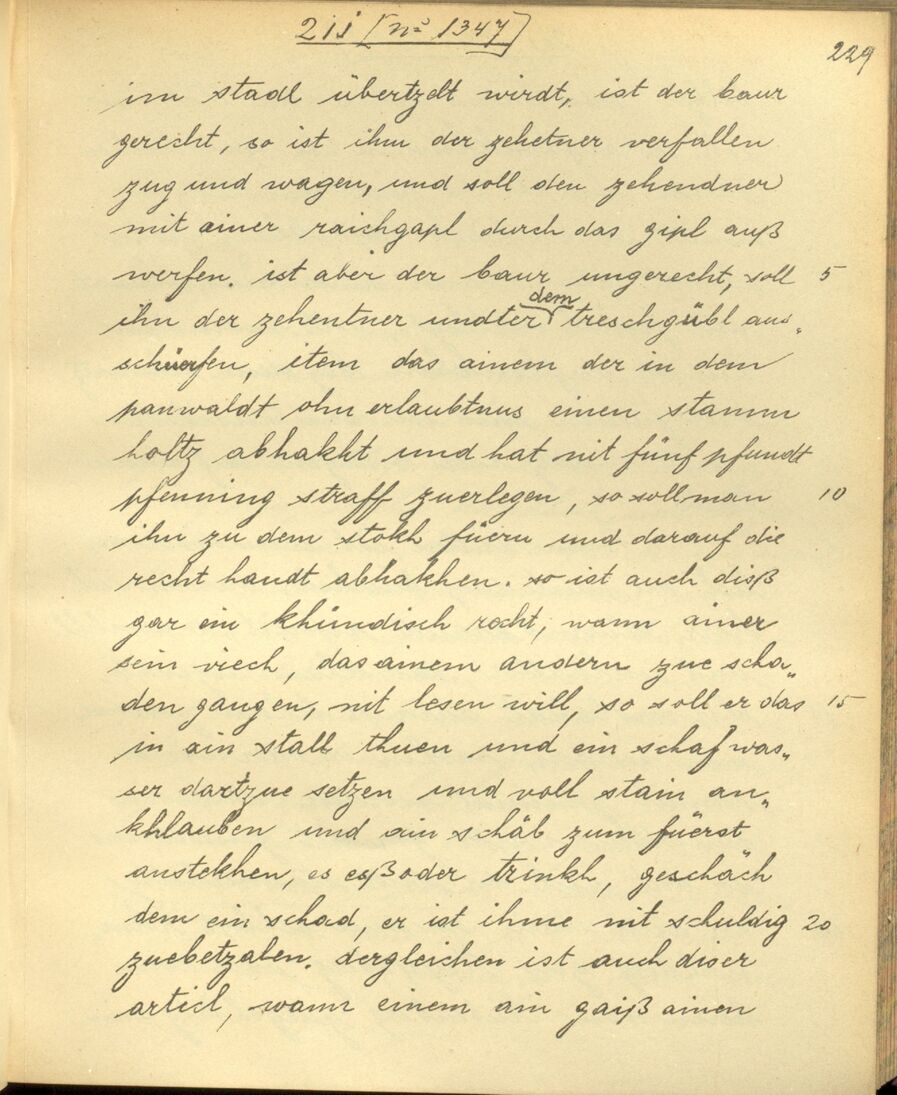 211 [nº 1347]
229
im stadl übertzelt wirdt, ist der baur
gerecht, so ist ihm der zehetner verfallen
zug und wagen, und soll den zehendner
mit ainer raichgapl durch das gipl auß
werfen. ist aber der baur ungerecht, soll 5
dem
ihn der zehentner undter treschgübl aus„
schüerfen, item das ainem der in dem
panwaldt ohn erlaubtnus einen stamm
holtz abhakht und hat nit fünf pfundt
pfenning straff zuerlegen, so soll man 10
ihn zu dem stokh füern und darauf die
recht handt abhakhen. so ist auch disß
gar ein khindisch recht, wann ainer
sein viech, das ainem andern zue scha„
den gangen, nit lesen will, so soll er das 15
in ain stall thuen und ein schaf was„
ser dartzue setzen und voll stain an„
khlauben und ain schäb zum füerst
anstekhen, es eß oder trinkh, geschäch
dem ein schad, er ist ihme nit schuldig 20
zuebetzalen. dergleichen ist auch diser
articl, wann einem ain gaiß ainen